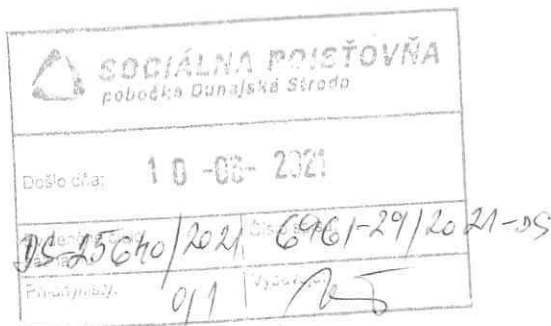 SOCIÁLNA POISŤOVŇA
pobočka Dunajská Streda
Došlo dňa: 10 -08- 2021
DS-25640/2021 6961-29/2021-DS
Prílohy/listy: 0/1 Vybavuje: